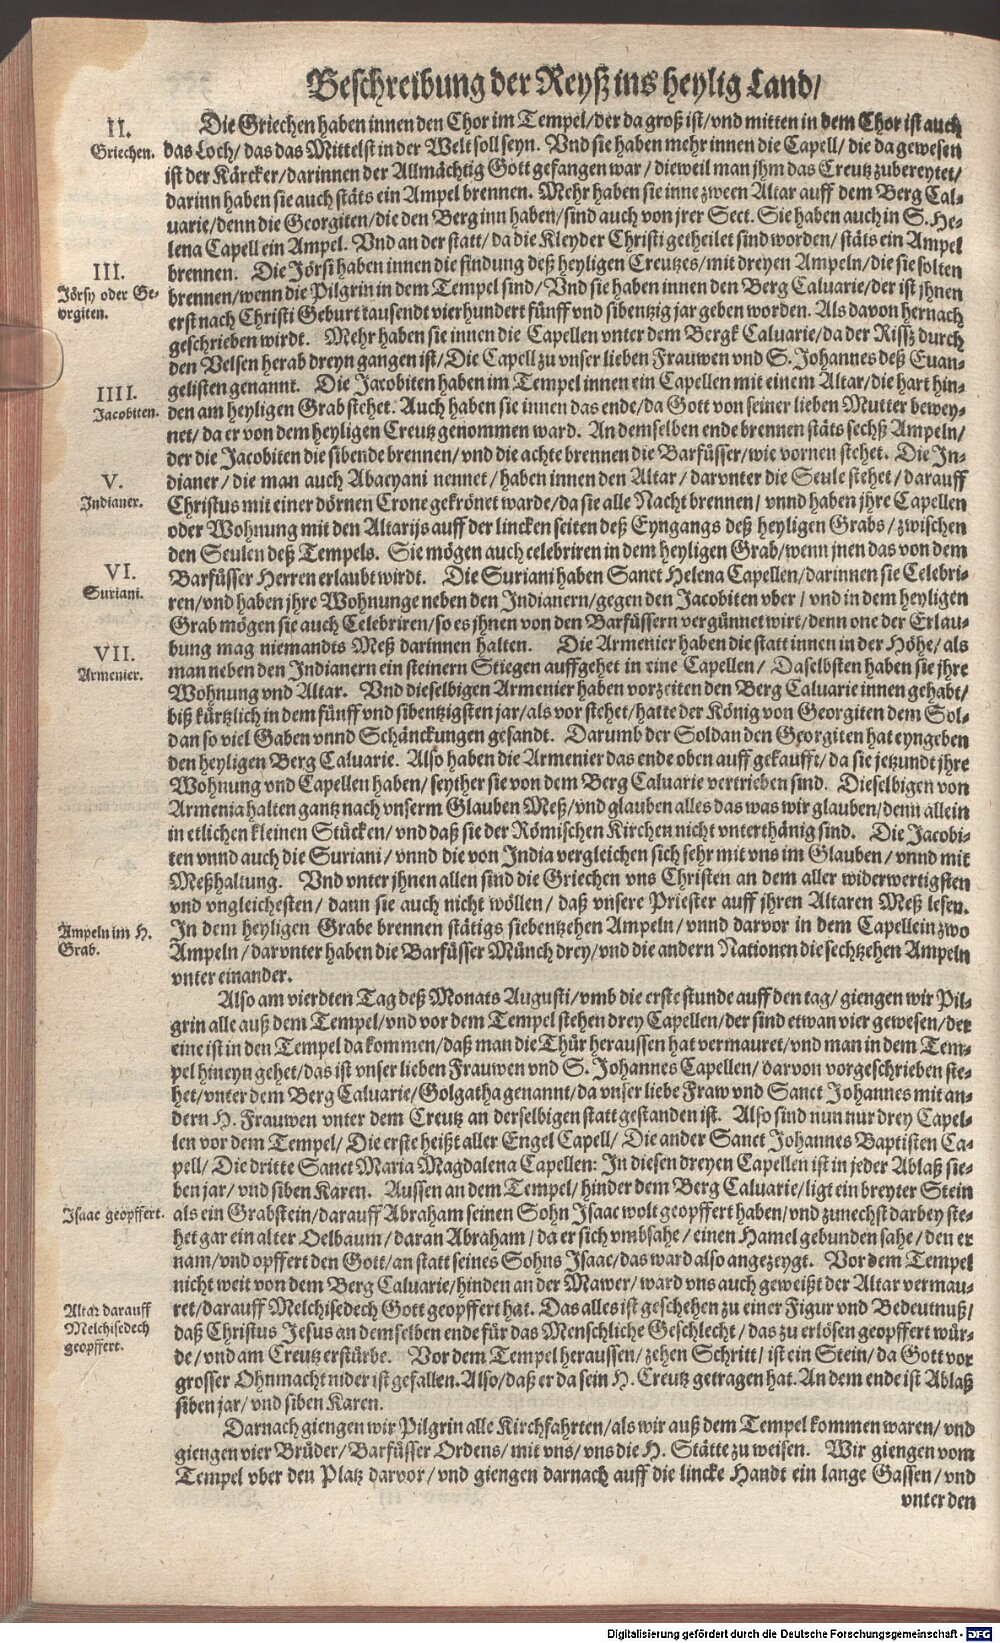 Beschreibung der Reyß ins heylig Land/
II.
Griechen.
Die Griechen haben innen den Chor im Tempel/ der da groß ist/ vnd mitten in dem Chor ist auch
das Loch/ das das Mittelst in der Welt soll seyn. Vnd sie haben mehr innen die Capell/ die da gewesen
ist der Kärcker/ darinnen der Allmächtig Gott gefangen war/ dieweil man jhm das Creutz zubereytet/
darinn haben sie auch stäts ein Ampel brennen. Mehr haben sie inne zween Altar auff dem Berg Cal-
uarie/ denn die Georgiten/ die den Berg inn haben/ sind auch von jrer Sect. Sie haben auch in S. He-
lena Capell ein Ampel. Vnd an der statt/ da die Kleyder Christi getheilet sind worden/ stäts ein Ampel
III.
Jörsy oder Ge-
orgiten.
brennen. Die Jörsi haben innen die findung deß heyligen Creutzes/ mit dreyen Ampeln/ die sie solten
brennen/ wenn die Pilgrin in dem Tempel sind/ Vnd sie haben innen den Berg Caluarie/ der ist jhnen
erst nach Christi Geburt tausendt vierhundert fünff vnd sibentzig jar geben worden. Als davon hernach
geschrieben wirdt. Mehr haben sie innen die Capellen vnter dem Bergk Caluarie/ da der Rissz durch
den Velsen herab dreyn gangen ist/ Die Capell zu vnser lieben Frauwen vnd S. Johannes deß Euan-
IIII.
Jacobiten.
gelisten genannt. Die Jacobiten haben im Tempel innen ein Capellen mit einem Altar/ die hart hin-
den am heyligen Grab stehet. Auch haben sie innen das ende/ da Gott von seiner lieben Mutter bewey-
net/ da er von dem heyligen Creutz genommen ward. An demselben ende brennen stäts sechß Ampeln/
der die Jacobiten die sibende brennen/ vnd die achte brennen die Barfüsser/ wie vornen stehet. Die In-
V.
Indianer.
dianer/ die man auch Abacyani nennet/ haben innen den Altar/ darunter die Seule stehet/ darauff
Christus mit einer dörnen Crone gekrönet warde/ da sie alle Nacht brennen/ vnnd haben jhre Capellen
oder Wohnung mit den Altarijs auff der lincken seiten deß Eyngangs deß heyligen Grabs/ zwischen
den Seulen deß Tempels. Sie mögen auch celebriren in dem heyligen Grab/ wenn jnen das von dem
VI.
Suriani.
Barfüsser Herren erlaubt wirdt. Die Suriani haben Sanct Helena Capellen/ darinnen sie Celebri-
ren/ vnd haben jhre Wohnunge neben den Indianern/ gegen den Jacobiten vber/ vnd in dem heyligen
Grab mögen sie auch Celebriren/ so es jhnen von den Barfüssern vergünnet wirt/ denn one der Erlau-
VII.
Armenier.
bung mag niemandts Meß darinnen halten. Die Armenier haben die statt innen in der Höhe/ als
man neben den Indianern ein steinern Stiegen auffgehet in eine Capellen/ Daselbsten haben sie jhre
Wohnung vnd Altar. Vnd dieselbigen Armenier haben vorzeiten den Berg Caluarie innen gehabt/
biß kürtzlich in dem fünff vnd sibentzigsten jar/ als vor stehet/ hatte der König von Georgiten dem Sol-
dan so viel Gaben vnnd Schänckungen gesandt. Darumb der Soldan den Georgiten hat eyngeben
den heyligen Berg Caluarie. Also haben die Armenier das ende oben auff gekaufft/ da sie jetzundt jhre
Wohnung vnd Capellen haben/ seyther sie von dem Berg Caluarie vertrieben sind. Dieselbigen von
Armenia halten gantz nach vnserm Glauben Meß/ vnd glauben alles das was wir glauben/ denn allein
in etlichen kleinen Stücken/ vnd daß sie der Römischen Kirchen nicht vnterthänig sind. Die Jacobi-
ten vnnd auch die Suriani/ vnnd die von India vergleichen sich sehr mit vns im Glauben/ vnnd mit
Meßhaltung. Vnd vnter jhnen allen sind die Griechen vns Christen an dem aller widerwertigsten
vnd vngleichesten/ dann sie auch nicht wöllen/ daß vnsere Priester auff jhren Altaren Meß lesen.
Ampeln im H.
Grab.
In dem heyligen Grabe brennen stätigs siebentzehen Ampeln/ vnnd darvor in dem Capellein zwo
Ampeln/ darunter haben die Barfüsser Münch drey/ vnd die andern Nationen die sechtzehen Ampeln
vnter einander.
Also am vierdten Tag deß Monats Augusti/ vmb die erste stunde auff den tag/ giengen wir Pil-
grin alle auß dem Tempel/ vnd vor dem Tempel stehen drey Capellen/ der sind etwan vier gewesen/ der
eine ist in den Tempel da kommen/ daß man die Thür heraussen hat vermauret/ vnd man in dem Tem-
pel hineyn gehet/ das ist vnser lieben Frauwen vnd S. Johannes Capellen/ darvon vorgeschrieben ste-
het/ vnter dem Berg Caluarie/ Golgatha genannt/ da vnser liebe Fraw vnd Sanct Johannes mit an-
dern H. Frauwen vnter dem Creutz an derselbigen statt gestanden ist. Also sind nun nur drey Capel-
len vor dem Tempel/ Die erste heißt aller Engel Capell/ Die ander Sanct Johannes Baptisten Ca-
pell/ Die dritte Sanct Maria Magdalena Capellen: In diesen dreyen Capellen ist in jeder Ablaß sie-
ben jar/ vnd siben Karen. Aussen an dem Tempel/ hinder dem Berg Caluarie/ ligt ein breyter Stein
Isaac geopffert.
als ein Grabstein/ darauff Abraham seinen Sohn Isaac wolt geopffert haben/ vnd zunechst darbey ste-
het gar ein alter Oelbaum/ daran Abraham/ da er sich vmbsahe/ einen Hamel gebunden sahe/ den er
nam/ vnd opffert den Gott/ an statt seines Sohns Isaac/ das ward also angezeygt. Vor dem Tempel
nicht weit von dem Berg Caluarie/ hinden an der Mawer/ ward vns auch geweißt der Altar vermau-
Altar darauff
Melchisedech
geopffert.
ret/ darauff Melchisedech Gott geopffert hat. Das alles ist geschehen zu einer Figur vnd Bedeutnuß/
daß Christus Jesus an demselben ende für das Menschliche Geschlecht/ das zu erlösen geopffert wür-
de/ vnd am Creutz erstürbe. Vor dem Tempel heraussen/ zehen Schritt/ ist ein Stein/ da Gott vor
grosser Ohnmacht nider ist gefallen. Also/ daß er da sein H. Creutz getragen hat. An dem ende ist Ablaß
siben jar/ vnd siben Karen.
Darnach giengen wir Pilgrin alle Kirchfahrten/ als wir auß dem Tempel kommen waren/ vnd
giengen vier Brüder/ Barfüsser Ordens/ mit vns/ vns die H. Stätte zu weisen. Wir giengen vom
Tempel vber den Platz darvor/ vnd giengen darnach auff die lincke Handt ein lange Gassen/ vnd
vnter den
Digitalisierung gefördert durch die Deutsche Forschungsgemeinschaft - DFG